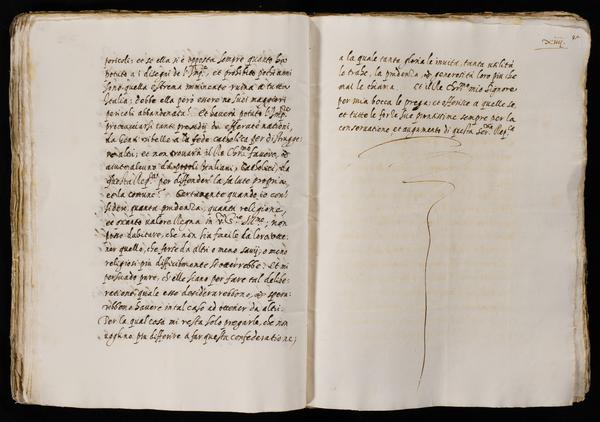 pericoli; et se ella si è opposta sempre quanto ha
potuto a i disegni de l'Imp.re et prohibito potria
sino quella estrema imminente ruina a tutta
Italia; debbe ella però essere ne suoi maggiori
pericoli abbandonata? Et haverà potuto l'Imp.re
procacciarsi tanti presidij da efferate nationi,
da Genti ribelle a la fede catholica per distrugger
altri; et non trovarà il Re Chr.mo favore, et
aiuto alcuno da popoli Italiani, et Catholici, da
questa Rep.ca per diffendere la salute propria,
et la comune? Certamente quando io con
sidero quanta prudenza, quanta religione,
et quanto valore Regna in V. Ser.tà Ill.me; non
posso dubitare, che non sia facile da loro otte
ner quello, che forse da altri o meno savij, o meno
religiosi più difficilmente si otterrebbe. Et mi
persuado pure, ch'elle siano per fare tal delibe
ratione; quale esse desiderarebbono, et spera
rebbono havere in tal caso ad ottener da altri.
Per la qual cosa mi resta solo pregarle, che non
voglino più differire a far questa confederatione;
xiiij.
a la quale tanta gloria le invita, tanta utilità
le trahe, la prudenza, et generosità loro più che
mai le chiama. Et il Re Chr.mo mio Signore
per mia bocca le prega; et offerisce a quelle se,
et tutte le forze sue prontissime sempre per la
conservatione et augumento di questa Ser.ma Rep.ca